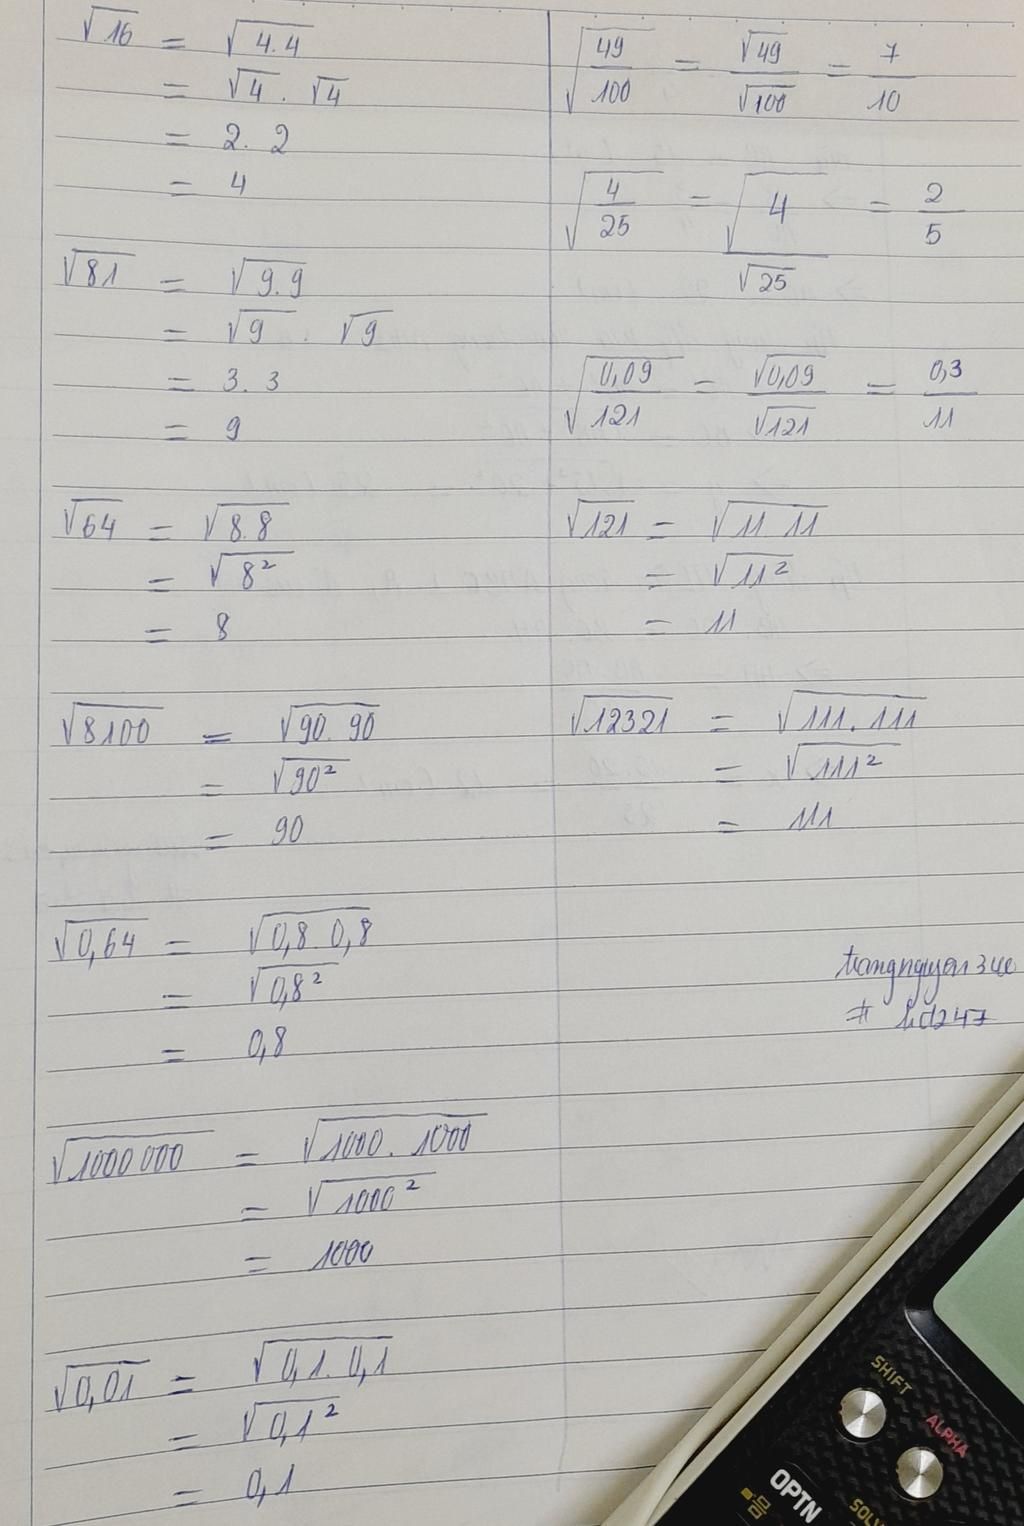 √16 = √4.4
= √4 . √4
= 2. 2
= 4
√81 = √9.9
= √9 . √9
= 3. 3
= 9
√64 = √8.8
= √8²
= 8
√8100 = √90. 90
= √90²
= 90
√0,64 = √0,8. 0,8
= √0,8²
= 0,8
√1000000 = √1000. 1000
= √1000²
= 1000
√0,01 = √0,1. 0,1
= √0,1²
= 0,1
√(49/100) = √49/√100 = 7/10
√(4/25) = √4/√25 = 2/5
√(0,09/121) = √0,09/√121 = 0,3/11
√121 = √11. 11
= √11²
= 11
√12321 = √111. 111
= √111²
= 111
#
SHIFT
ALPHA
OPTN